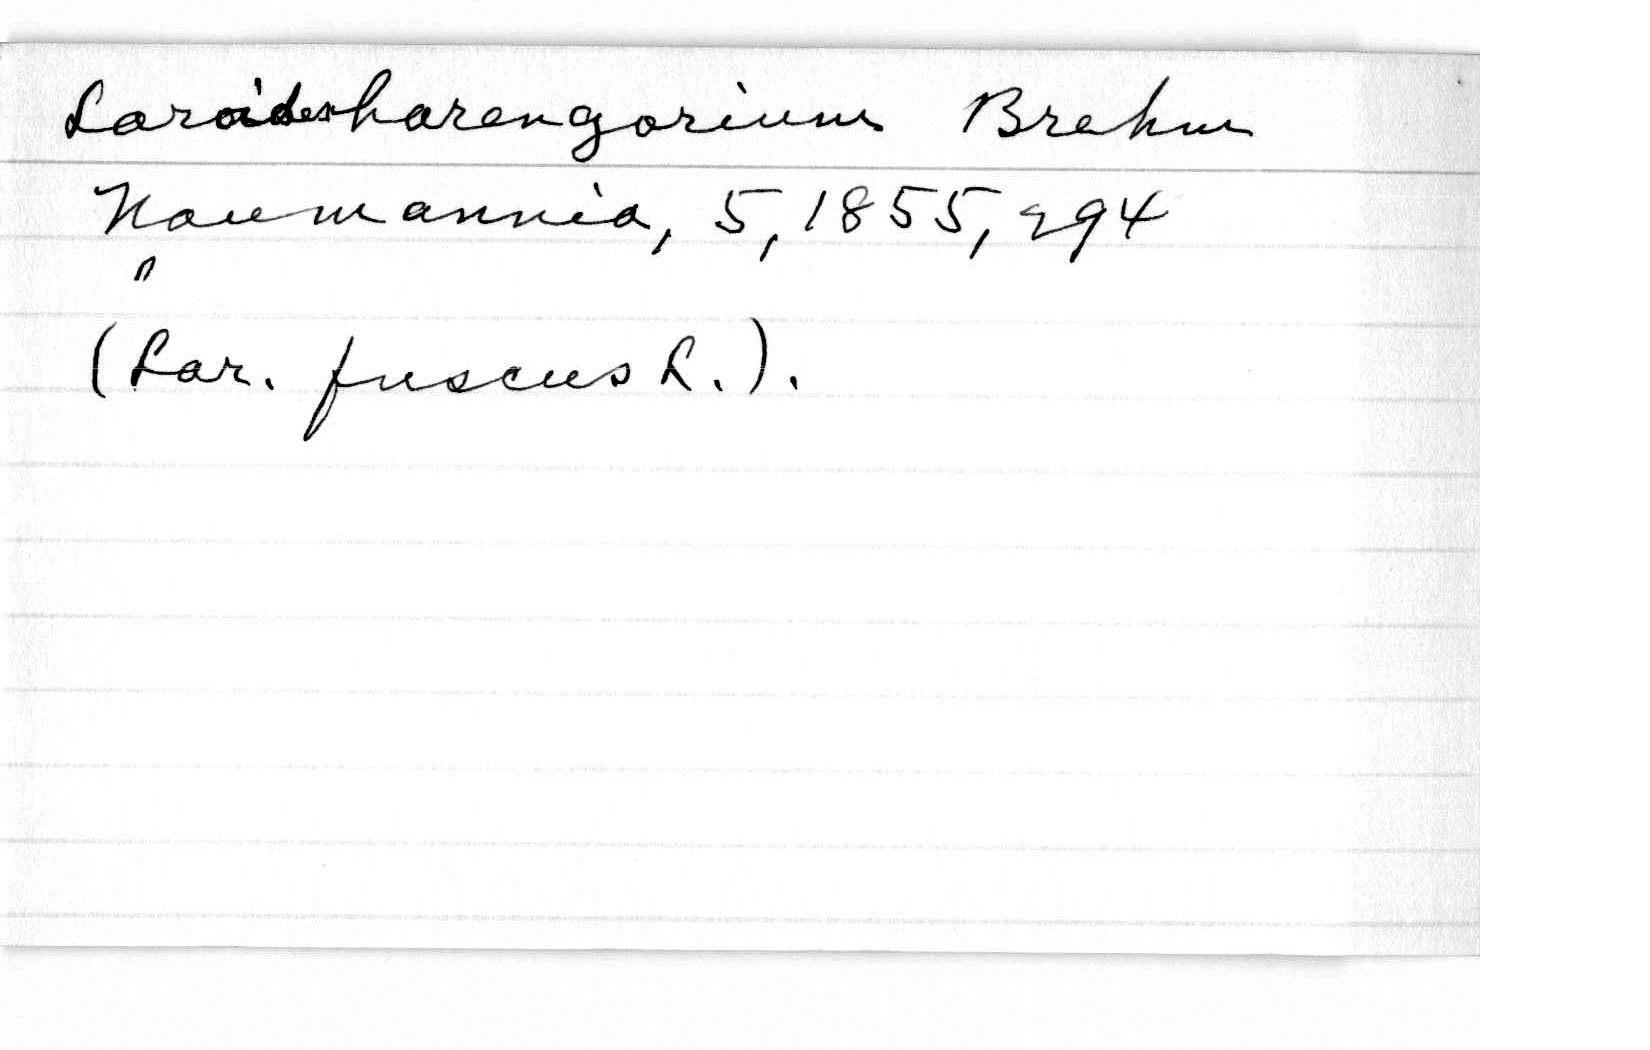 Laroides harengorium Brehm
Naumannia, 5, 1855, 294
"
(Lar. fuscus L.).